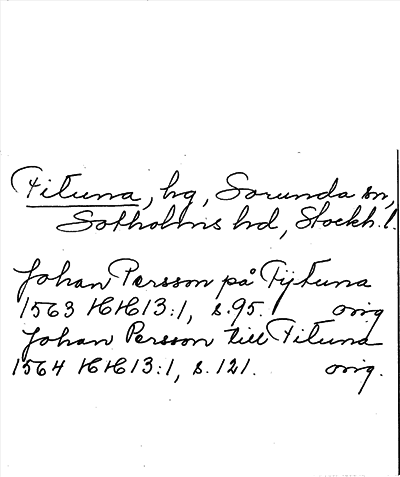 Fituna, hg, Sorunda sn,
Sotholms hd, Stockh. l.
Johan Persson på Fijtuna
1563 HH13:1, s. 95. orig
Johan Persson till Fituna
1564 HH13:1, s. 121. orig.